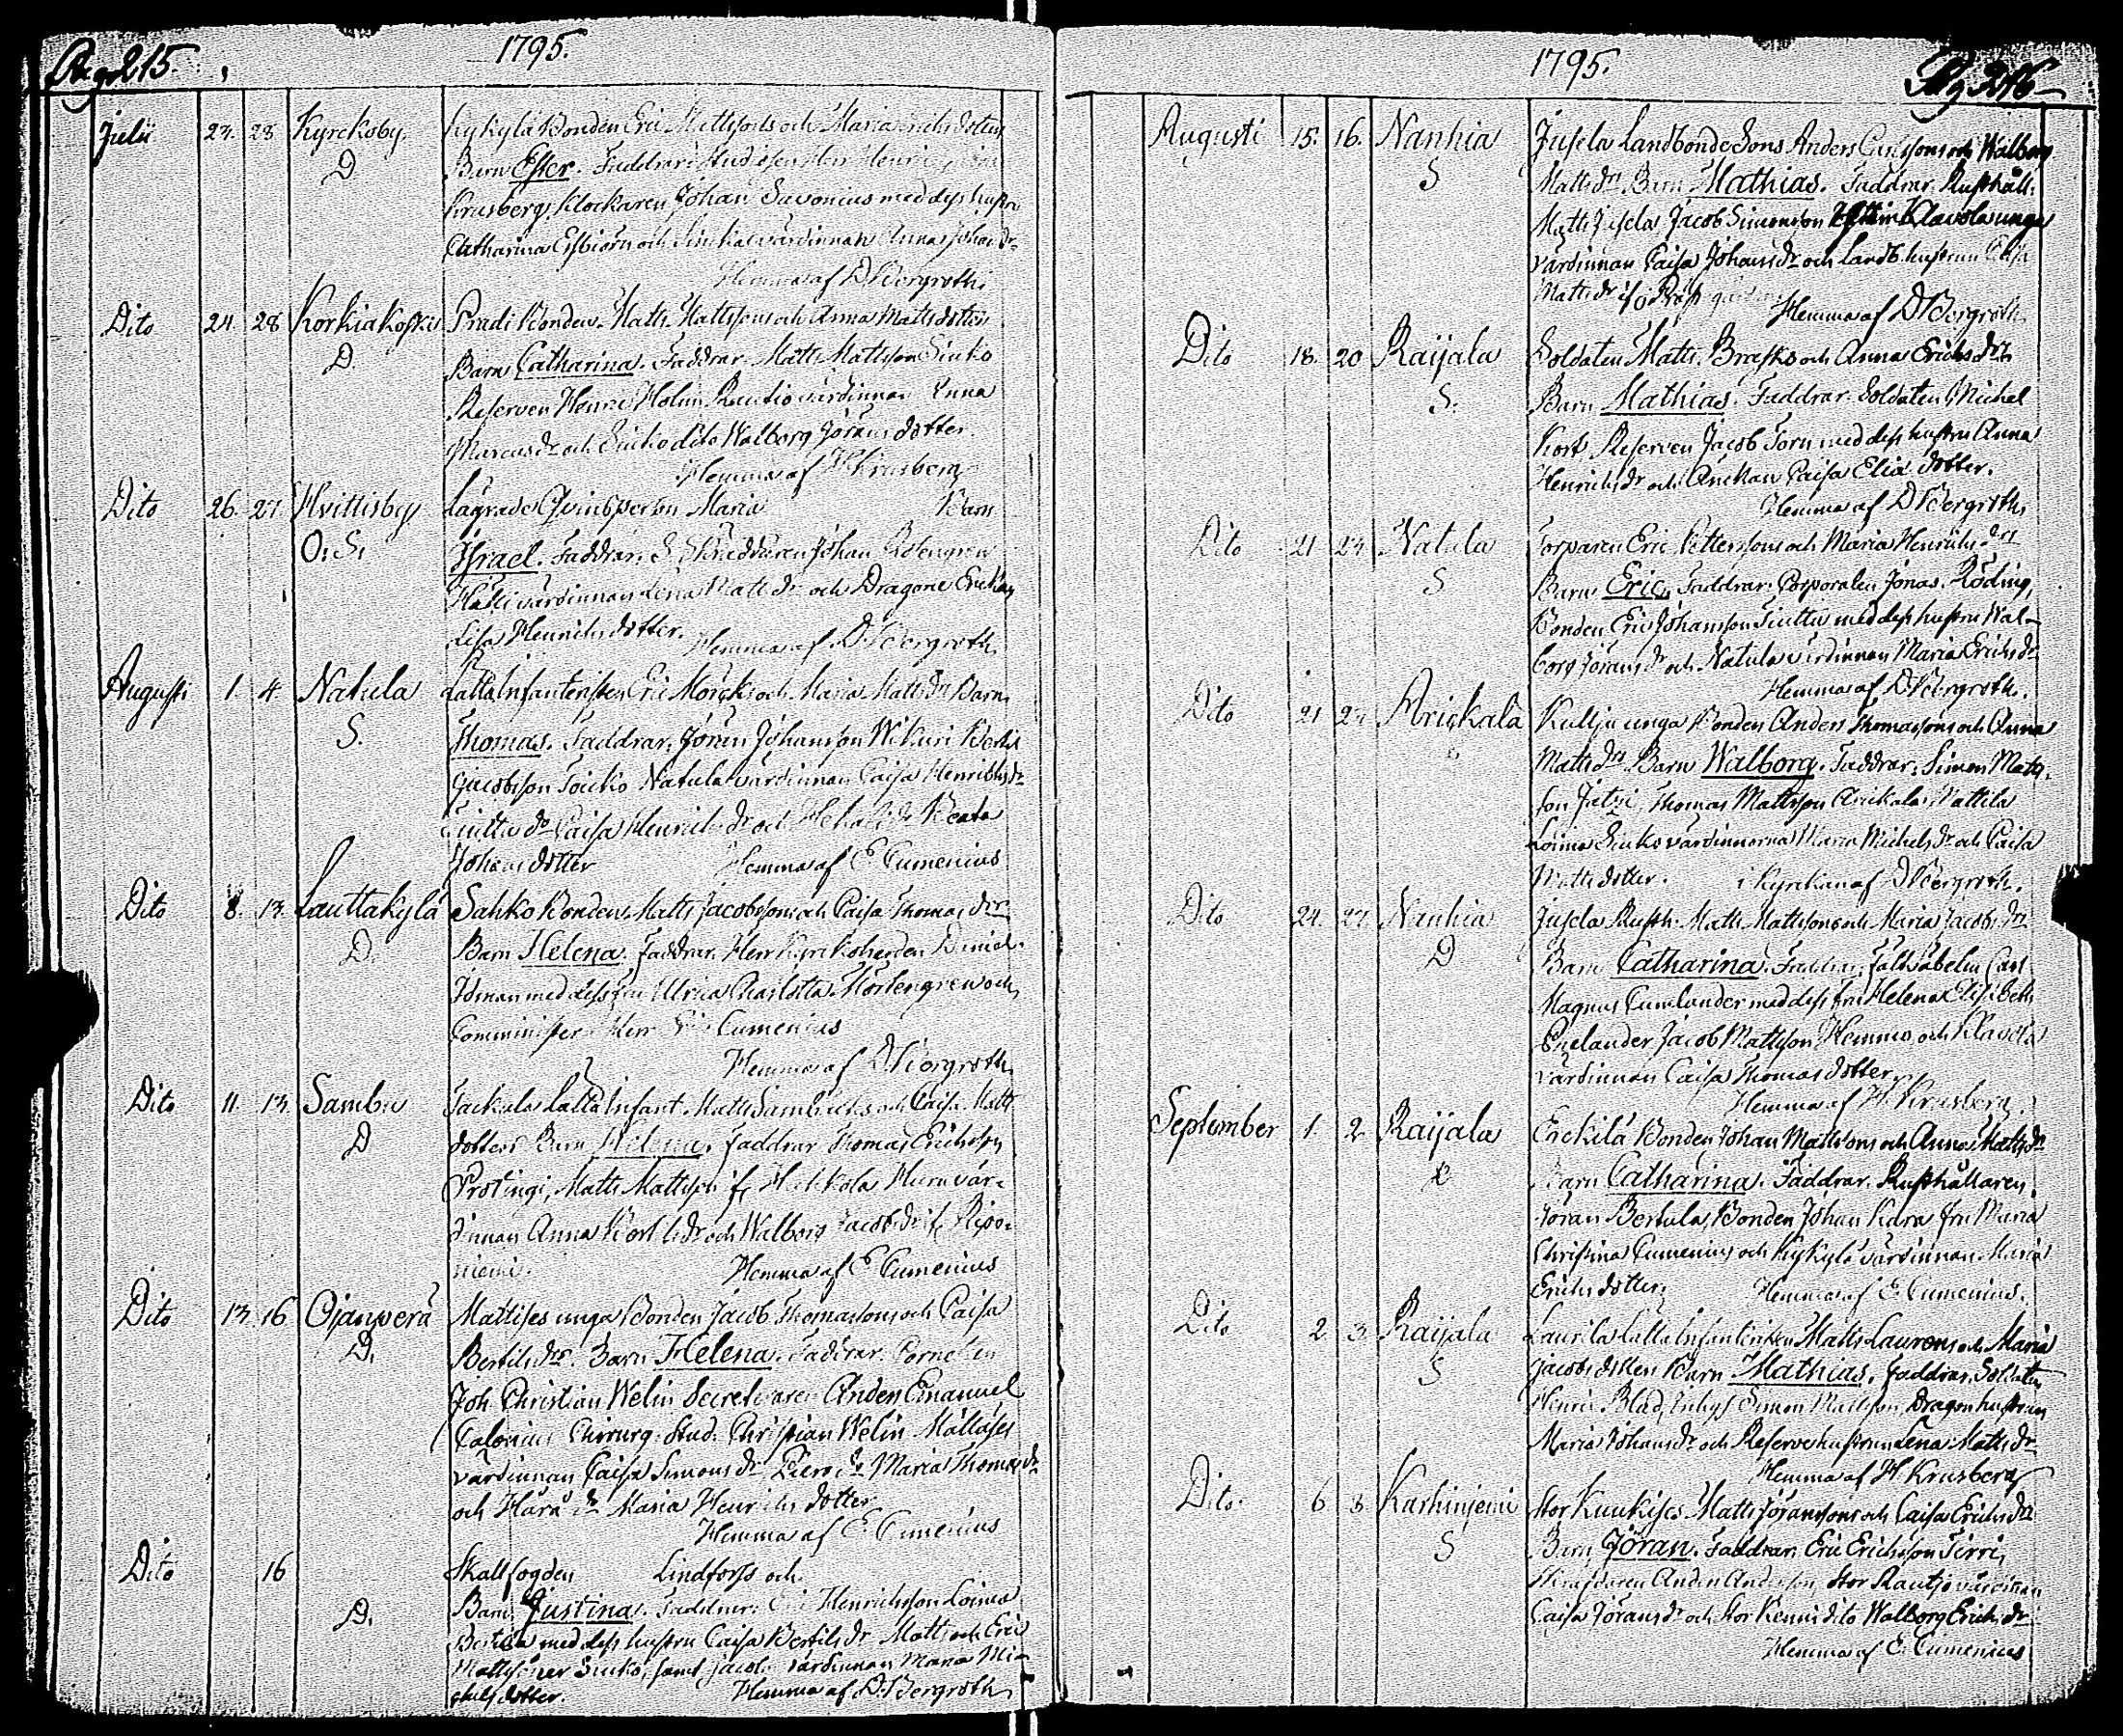 Pag. 215.
1795.
Julii 27. 28 Kyrckoby. Kykylä Bonden Eric Mattssons och Maria Erichsdotters
D Barn Ester. Faddrar: Studiosen Herr Henric
Krusberg, Klockaren Johan Savonius med dess hustru
Catharina Esbiörn och Sinkka värdinnan Anna Johansdr
Hemma af D. Bergroth.
Dito 24 28 Korkiakoski Pradi Bonden Matts Mattssons och Anna Mattsdotters
D. Barn Catharina. Faddrar. Matts Mattsson Siuko
Reserven Henric Holm Rautio värdinnan Anna
Marcusdr och Siuko dito Walborg Jöransdotter.
Hemma af H. Krusberg
Dito 26. 27 Hvittisby Lägrade Qvinsperson Maria Barn
O. S. Israel. Faddrar. Skräddaren Johan Rosengren
värdinnan Lena Mattsdr och Dragone Enckan
Lisa Henrichsdotter. Hemma af D. Bergroth.
Augusti 1. 4. Natula Lätta Infanteristen Eric Mörcks och Maria Mattsdrs Barn
S. Thomas. Faddrar. Jöran Johansson Wikari Bertil
Jacobsson Soicko Natula värdinnan Caisa Henrichsdr
do Caisa Henrichsdr och do Beata
Johansdotter Hemma af E. Cumenius
Dito 8. 13 Lauttakylä Sahko Bonden Matts Jacobssons och Caisa Thomasdrs
D. Barn Helena. Faddrar. Herr Kyrkoherden Daniel
med dess fru Ulrica Charlotta Mörtengren och
Comminister Herr Cumenius
Hemma af D. Bergroth.
Dito 11. 13 Sambu Lätta Infant. Matts och Caisa Matts
D dotters Barn Helena. Faddrar Thomas Erichsson
Prostingi, Matts Mattsson värdinnan
Anna Bertilsdr och Walborg Jacobsdr
niemi. Hemma af E. Cumenius
Dito 13 16 Ojanperä Mattises unga Bonden Jacob Thomassons och Caisa
D. Bertilsdrs Barn Helena. Faddrar. Cornetten
Joh. Christian Welin Secreteraren Anders Emanuel
Calonius Chirurg. Stud. Christian Welin
värdinnan Caisa Simonsdr do Maria Thomasdr
och do Maria Henrichsdotter
Hemma af E. Cumenius
Dito 16 Skallfogden Lindforss och
D. Barn Justina. Faddrar: Eric Henrichsson Loima
Bertila med dess hustru Caisa Bertilsdr Matts och Eric
Mattssöner Siuko, samt värdinnan Maria Mi-
chelsdotter. Hemma af D. Bergroth
1795.
Pag. 216
Augusti 15. 16. Nanhia Jusela Landbonde Sons Anders Carlssons och Walborg
S Mattsdrs Barn Mathias. Faddrar. Rusthåll.
Matts Jusela, Jacob Simonsson Klavola unga
värdinnan Caisa Johansdr och Landb. hustrun Lisa
Mattsdr
Hemma af D. Bergroth.
Dito 18. 20 Raijala Soldaten Matts Brasks och Anna Erichsdrs
S. Barn Mathias. Faddrar. Soldaten Michel
Kort Reserven Jacob Torn med dess hustru Anna
Henrichsdr och Enckan Caisa Eliædotter.
Hemma af D. Bergroth.
Dito 21 24 Natula Torparen Eric Petterssons och Maria Henrichsdrs
S Barn Eric. Faddrar. Corporalen Jonas Röding,
Bonden Eric Johansson med dess hustru Wal-
borg Jöransdr och Natula värdinnan Maria Erichsdr
Hemma af D. Bergroth.
Dito 21 27 Arickala Kullja unga Bonden Anders Thomassons och Anna
Mattsdrs Barn Walborg. Faddrar: Simon Matts-
son Jatzi, Thomas Mattsson Arickala, Mattila
Loima Siuko värdinnorna Maria Michelsdr och Caisa
Mattsdotter. i Kyrckan af D. Bergroth.
Dito 24. 27 Nanhia Jusela Rusth. Matts Mattssons och Maria Jacobsdrs
D Barn Catharina. Faddrar. Fältväbeln Carl
Magnus Cumlander med dess fru Helena Elisabeth
Enelander Jacob Mattsson Hemmo och Klavola
värdinnan Caisa Thomasdotter.
Hemma af H. Krusberg.
September 1. 2 Raijala Erckilä Bonden Johan Mattssons och Anna Mattsdrs
Barn Catharina. Faddrar. Rusthållaren
Jöran Bertula, Bonden Johan Kara fru Maria
Christina Cumenius och Kykylä värdinnan Maria
Erichsdotter. Hemma af E. Cumenius.
Dito 2 3 Raijala Laurila Lätta Infanteristen Matts Laurens och Maria
S Jacobsdotters Barn Mathias. Faddrar. Soldaten
Henric Blad, Inhyss Simon Mattsson, Dragon hustrun
Maria Johansdr och Reserve hustrun Lena Mattsdr
Hemma af H Krusberg
Dito 6 8 Karhiniemi Stor Kuukises Matts Jöranssons och Caisa Erichsdrs
S Barn Jöran. Faddrar. Eric Erichsson Tirri,
Anders Andersson, Stor Rautjo värdinnan
Caisa Jöransdr och Stor Kenni dito Walborg Erichsdr
Hemma af E. Cumenius